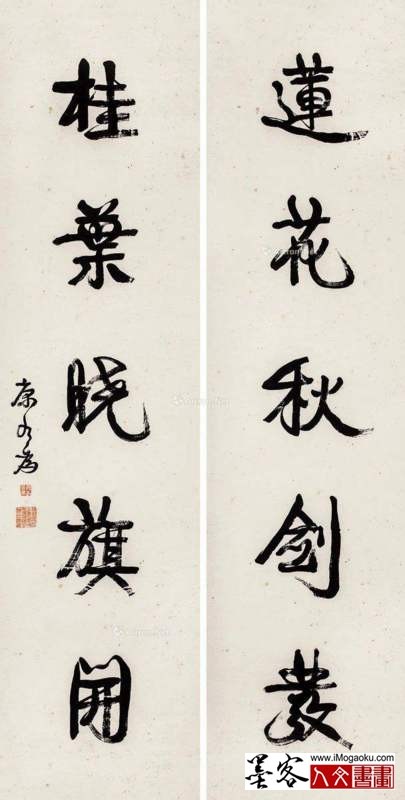 蓮花秋劍發
桂葉曉旗開
康有為
www.iMogaoku.com
墨客
人文書畫